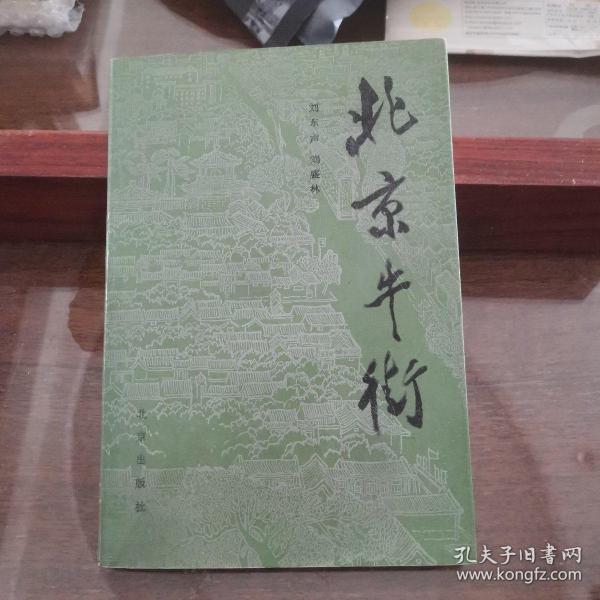 北京牛街
刘东声 刘盛林
北京出版社
孔夫子旧書网
www.kongfz.com